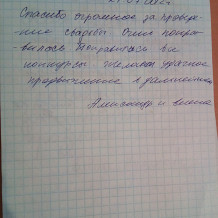 Спасибо огромное за проведе-
ние свадьбы. Очень понра-
-вилось. Понравились все
конкурсы. Желаем удачного
продвижения в дальнейшем
Александр и